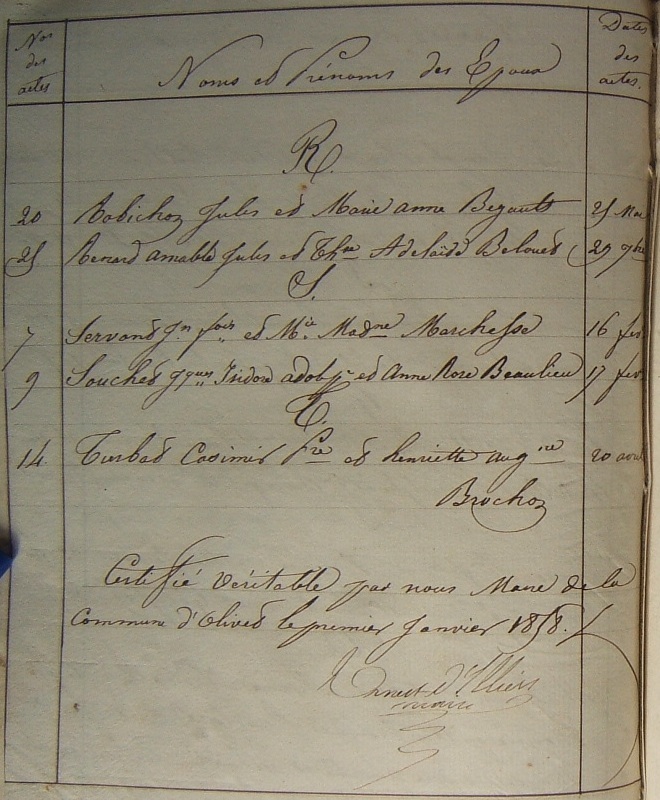 Nos des actes
Noms et Prénoms des Epoux
Dates des actes.
R.
20 Robichon Jules et Marie anne Begault 25 Mai
25 Renard amable Jules et Thse Adelaïde Belouet 29 9bre
S.
7 Servant Jn fois et Mie Madne Marchesse 16 fev
9 Souchet Jques Isidore adolpe et Anne Rose Beaulieu 17 fev
T.
14 Turbat Casimir Pre et henriette augne 20 avril
Brochon
Certifié véritable par nous Maire de la
Commune d'Olivet le premier Janvier 1858.
Ernest d'Illiers
maire